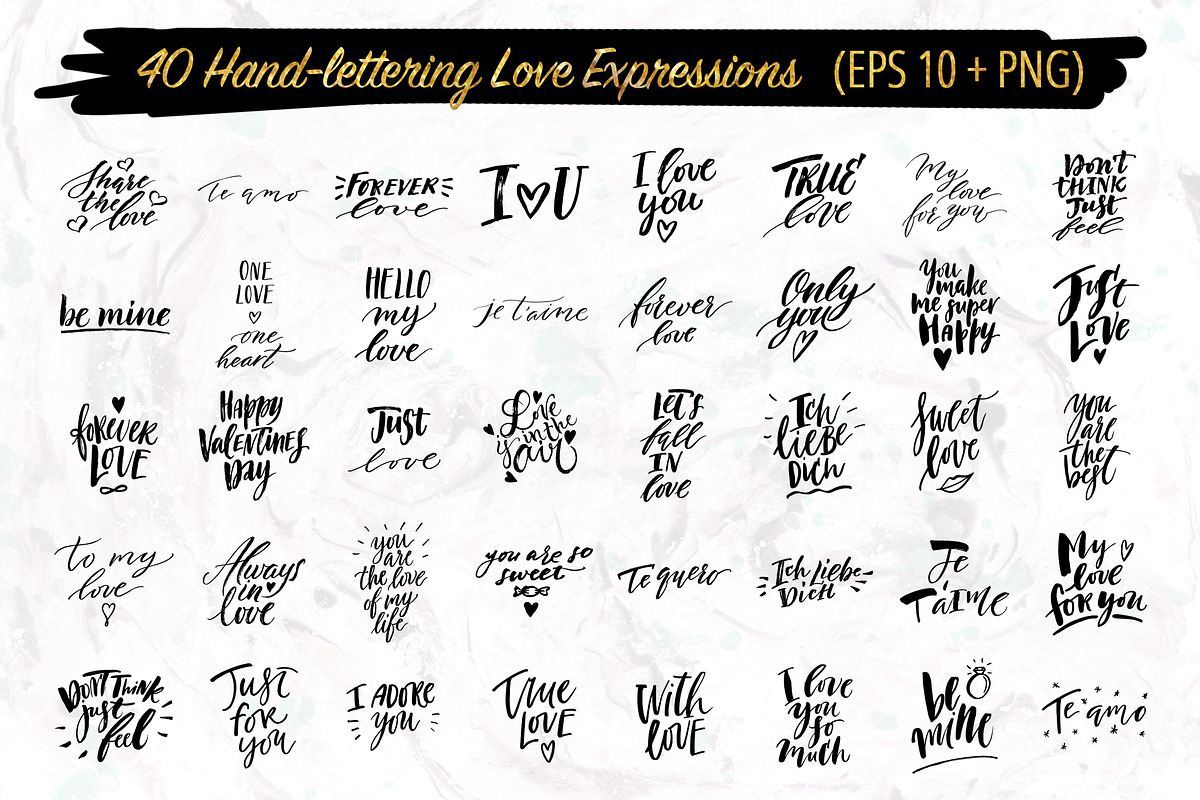 40 Hand-lettering Love Expressions (EPS 10 + PNG)
Share
the
love
Te amo
FOREVER
love
I U
I love
you
TRUE
love
My
love
for you
DON'T
THINK
Just
feel
be mine
ONE
LOVE
one
heart
HELLO
my
love
je t'aime
forever
love
Only
you
You
make
me super
Happy
JUST
LOVE
forever
LOVE
Happy
VALENTINES
Day
Just
love
Love
is in the
air
LET'S
fall
IN
love
Ich
liebe
Dich
sweet
love
you
are
the
best
to my
love
Always
in
love
you
are
the love
of my
life
you are so
sweet
Te quero
Ich Liebe
Dich
Je
T'aime
My
love
for you
DON'T Think
just
feel
Just
for
you
I ADORE
you
True
LOVE
With
love
I love
you
so
much
be
mine
Te amo